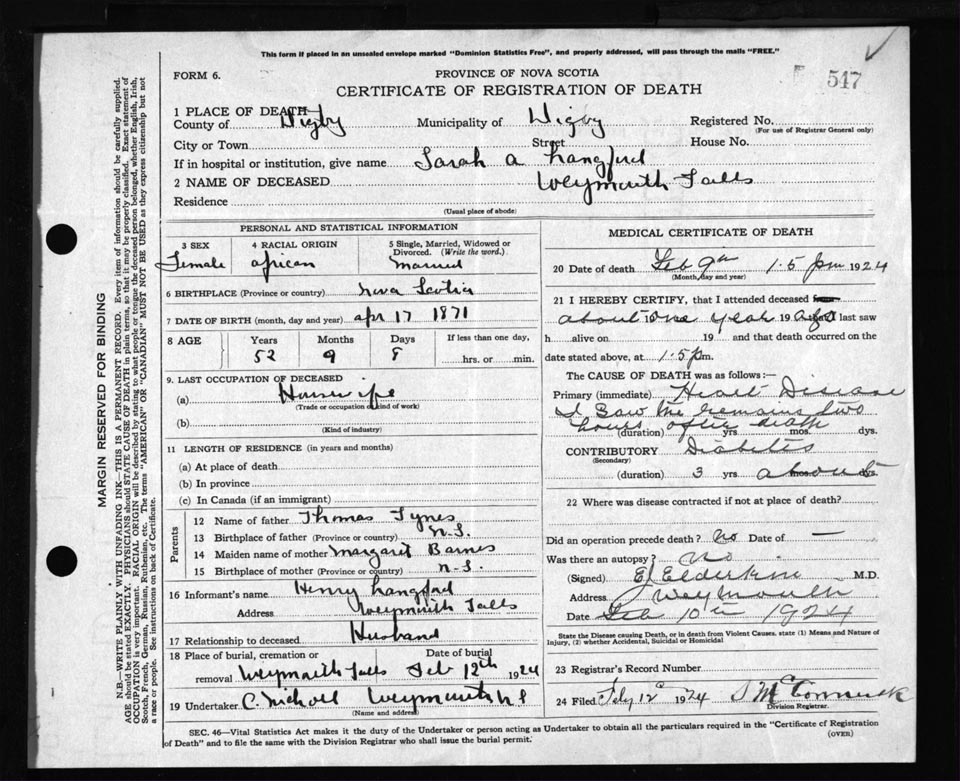 This form if placed in an unsealed envelope marked "Dominion Statistics Free", and properly addressed, will pass through the mails "FREE."
FORM 6.
PROVINCE OF NOVA SCOTIA
547
CERTIFICATE OF REGISTRATION OF DEATH
1 PLACE OF DEATH
County of Digby Municipality of Digby Registered No.
(For use of Registrar General only)
City or Town Street House No.
If in hospital or institution, give name Sarah A Langford
2 NAME OF DECEASED Weymouth Falls
Residence
(Usual place of abode)
PERSONAL AND STATISTICAL INFORMATION
3 SEX 4 RACIAL ORIGIN 5 Single, Married, Widowed or Divorced. (Write the word.)
Female African Married
6 BIRTHPLACE (Province or country) Nova Scotia
7 DATE OF BIRTH (month, day and year) Apr 17 1871
8 AGE Years Months Days If less than one day,
52 9 8 hrs. or min.
9. LAST OCCUPATION OF DECEASED
(a) Housewife
(Trade or occupation or kind of work)
(b)
(Kind of industry)
11 LENGTH OF RESIDENCE (in years and months)
(a) At place of death
(b) In province
(c) In Canada (if an immigrant)
Parents
12 Name of father Thomas Tynes
13 Birthplace of father (Province or country) N.S.
14 Maiden name of mother Margaret Barnes
15 Birthplace of mother (Province or country) N.S.
16 Informant's name Henry Langford
Address Weymouth Falls
17 Relationship to deceased Husband
18 Place of burial, cremation or Date of burial
removal Weymouth Falls Feb 12th 1924
19 Undertaker C. Nicholl Weymouth N S
(Name and address)
MEDICAL CERTIFICATE OF DEATH
20 Date of death Feb 9th 1.5 pm 1924
(Month, day and year)
21 I HEREBY CERTIFY, that I attended deceased from
about to one year 19 ago last saw
h alive on 19 and that death occurred on the
date stated above, at 1.5 pm.
The CAUSE OF DEATH was as follows:—
Primary (immediate) Heart Disease
I saw the remains two
hours after death
(duration) yrs. mos. dys.
CONTRIBUTORY Diabetes
(Secondary)
(duration) 3 yrs. about mos. dys.
22 Where was disease contracted if not at place of death?
Did an operation precede death? No Date of —
Was there an autopsy? No
(Signed) E J Elderkin M.D.
Address Weymouth
Date Feb 10th 1924
State the Disease causing Death, or in death from Violent Causes, state (1) Means and Nature of
Injury, (2) whether Accidental, Suicidal or Homicidal
23 Registrar's Record Number
24 Filed Feby 12 1924 McCormick
Division Registrar.
SEC. 46—Vital Statistics Act makes it the duty of the Undertaker or person acting as Undertaker to obtain all the particulars required in the "Certificate of Registration
of Death" and to file the same with the Division Registrar who shall issue the burial permit.
(OVER)
MARGIN RESERVED FOR BINDING
N.B.—WRITE PLAINLY WITH UNFADING INK—THIS IS A PERMANENT RECORD. Every item of information should be carefully supplied.
AGE should be stated EXACTLY. PHYSICIANS should STATE CAUSE OF DEATH in plain terms, so that it may be properly classified. Exact statement of
OCCUPATION is very important. RACIAL ORIGIN will be described by stating to what people or tongue the deceased person belonged, whether English, Irish,
Scotch, French, German, Russian, Ruthenian, etc. The terms "AMERICAN" OR "CANADIAN" MUST NOT BE USED as they express citizenship but not
a race or people. See instructions on back of Certificate.